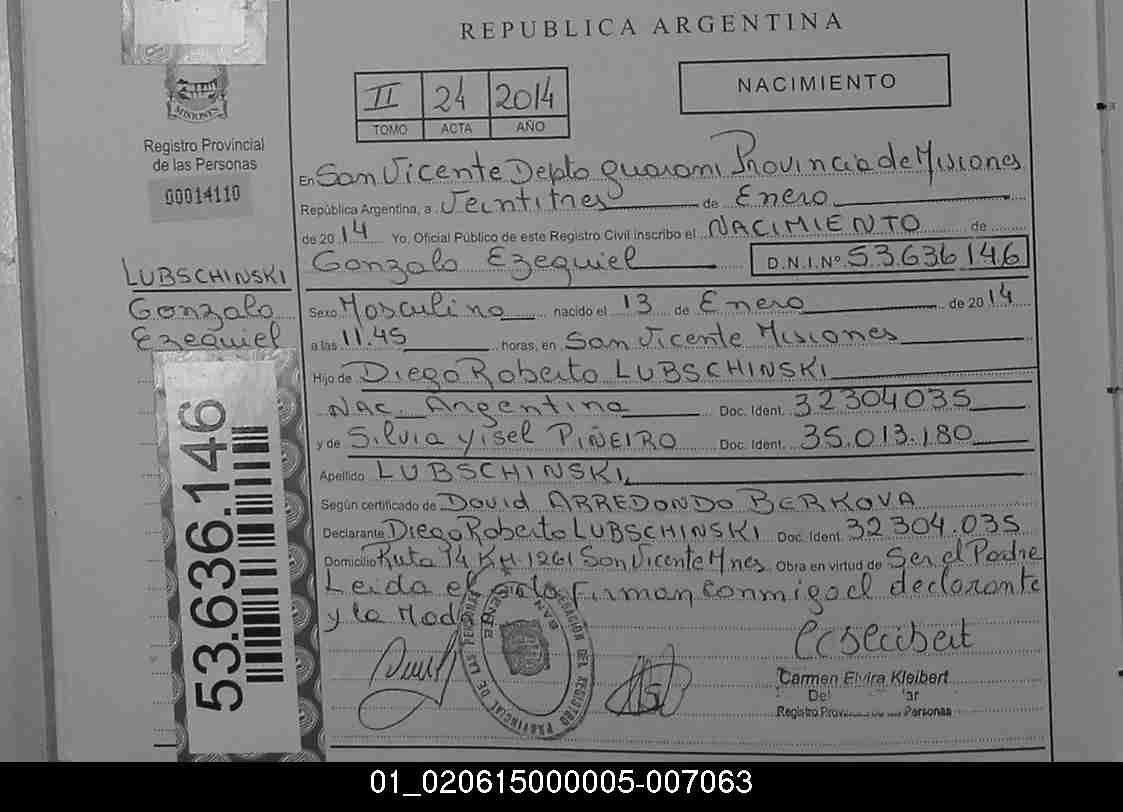 REPUBLICA ARGENTINA
NACIMIENTO
II 24 2014
TOMO ACTA AÑO
MISIONES
Registro Provincial
de las Personas
00014110
En San Vicente Depto guarani Provincia de Misiones
República Argentina, a Veintitres de Enero
de 2014 Yo, Oficial Público de este Registro Civil inscribo el NACIMIENTO de
Gonzalo Ezequiel D.N.I.Nº 53.636 146
LUBSCHINSKI
Gonzalo
Ezequiel
Sexo Masculino nacido el 13 de Enero de 2014
a las 11.45 horas, en San Vicente Misiones
Hijo de Diego Roberto LUBSCHINSKI
Nac. Argentina Doc. Ident. 32304035
y de Silvia Yisel PIÑEIRO Doc. Ident. 35.013.180
Apellido LUBSCHINSKI
Según certificado de David ARREDONDO BERKOVA
Declarante Diego Roberto LUBSCHINSKI Doc. Ident. 32304.035
Domicilio Ruta 14 KM 1261 San Vicente Mnes Obra en virtud de Ser el Padre
Leida el acta Firman conmigo el declarante
y la Mad
53.636.146
Carmen Elvira Kleibert
Registro Personas
01_020615000005-007063